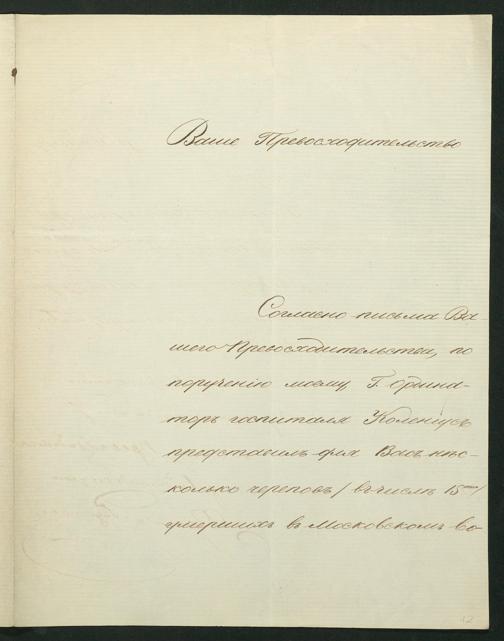 Ваше Превосходительство
Согласно письма Ва-
шего Превосходительства, по
порученію моему Г. Ордина-
торъ госпиталя Коленіусъ
представилъ для Васъ нѣс-
колько череповъ / въ числѣ 15ти /
умершихъ въ Московскомъ Во-
12